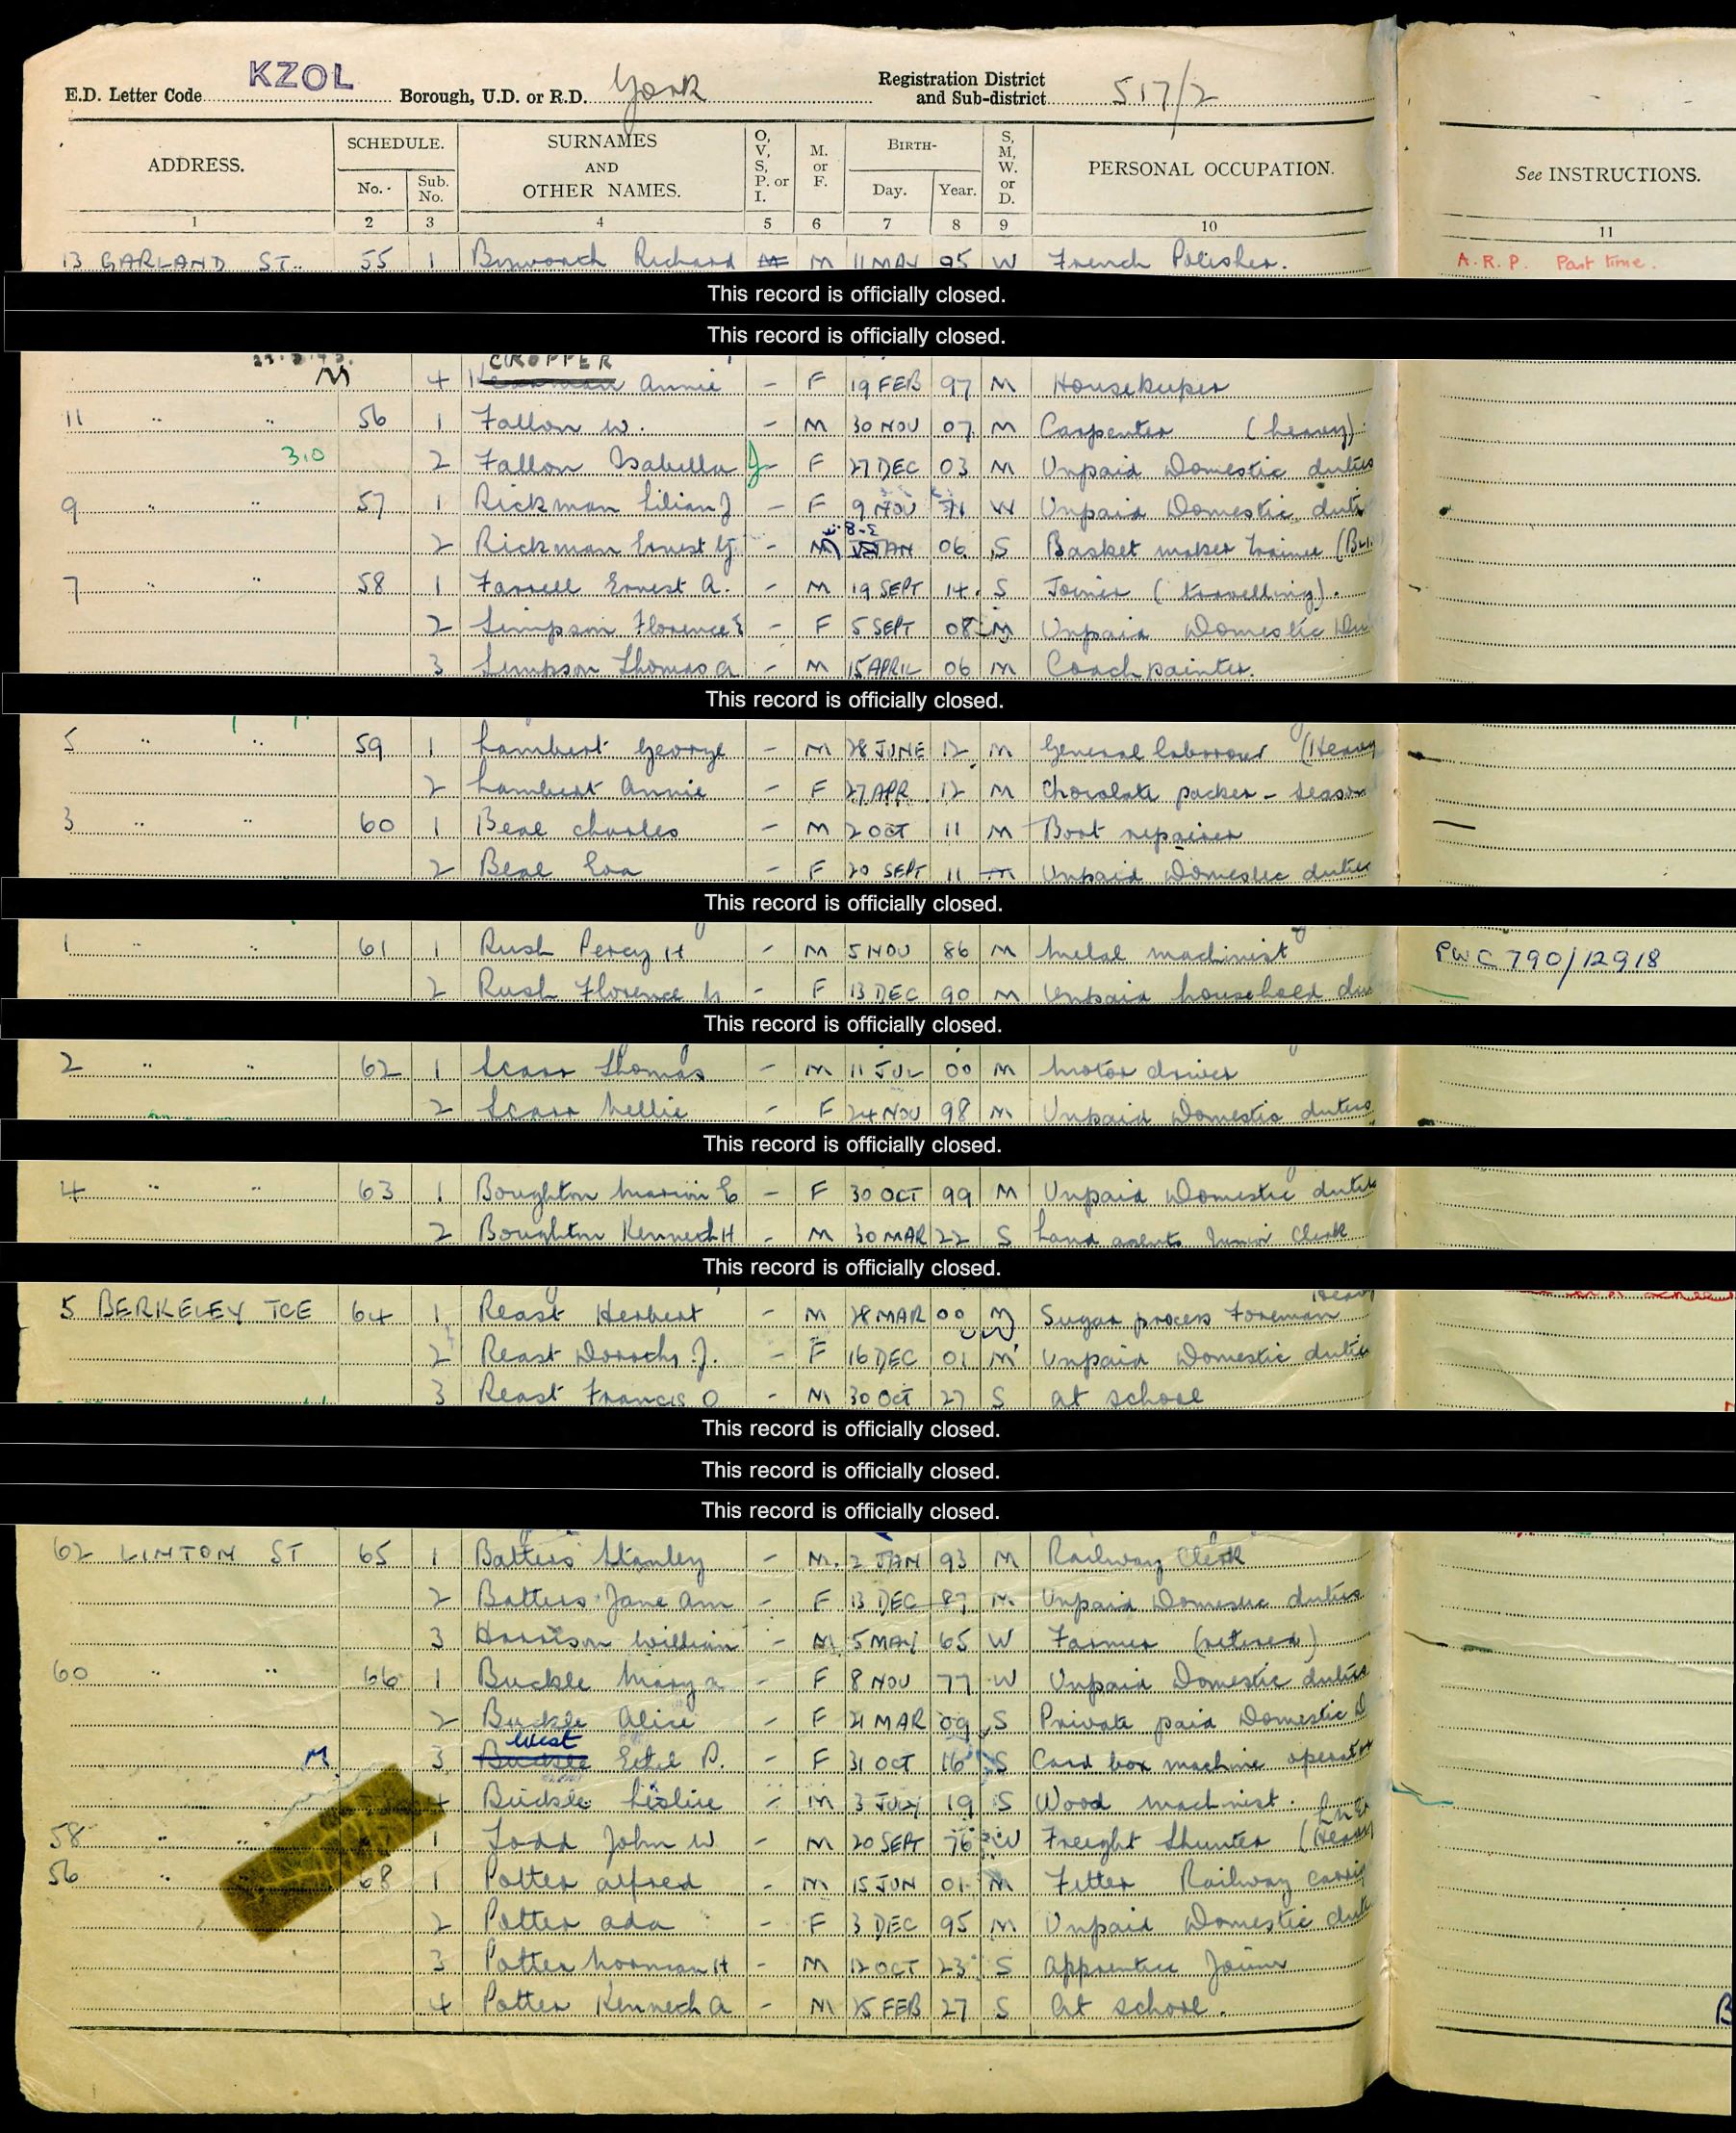 E.D. Letter Code KZOL Borough, U.D. or R.D. York Registration District and Sub-district 517/2
ADDRESS. SCHEDULE. No. Sub. No. SURNAMES AND OTHER NAMES. O, V, S, P. or I. M. or F. BIRTH- Day. Year. S, M, W. or D. PERSONAL OCCUPATION. See INSTRUCTIONS.
1 2 3 4 5 6 7 8 9 10 11
13 GARLAND ST. 55 1 Richard M 11 MAY 95 W French Polisher. A.R.P. Part time.
This record is officially closed.
This record is officially closed.
CROPPER
M 4 Annie - F 19 FEB 97 M Housekeeper
11 " " 56 1 Fallon W. - M 30 NOV 07 M Carpenter (heavy)
3.0 2 Fallon Isabella - F 27 DEC 03 M Unpaid Domestic duties
9 " " 57 1 Rickman Lilian J - F 9 NOV 71 W Unpaid Domestic duti
2 Rickman Ernest G - M JAN 06 S Basket maker trainee
7 " " 58 1 Farrell Ernest A. - M 19 SEPT 14 S Joiner (travelling).
2 Simpson Florence E - F 5 SEPT 08 M Unpaid Domestic Du
3 Simpson Thomas A - M 15 APRIL 06 M Coach painter.
This record is officially closed.
5 " " 59 1 Lambert George - M 28 JUNE 12 M General labourer (Heavy
2 Lambert Annie - F 27 APR 12 M Chocolate packer - season
3 " " 60 1 Beal Charles - M 2 OCT 11 M Boot repairer
2 Beal Eva - F 20 SEPT 11 M Unpaid Domestic duties
This record is officially closed.
1 " " 61 1 Rush Percy H - M 5 NOV 86 M Metal machinist PWC 790/12918
2 Rush Florence - F 13 DEC 90 M Unpaid household du
This record is officially closed.
2 " " 62 1 Scarr Thomas - M 11 JUL 00 M Motor driver
2 Scarr Nellie - F 24 NOV 98 M Unpaid Domestic duties
This record is officially closed.
4 " " 63 1 Boughton Marion E - F 30 OCT 99 M Unpaid Domestic duties
2 Boughton Kenneth H - M 30 MAR 22 S Land agents Junior Clerk
This record is officially closed.
5 BERKELEY TCE 64 1 Reast Herbert - M 28 MAR 00 M Sugar process Foreman Heavy
2 Reast Dorothy J. - F 16 DEC 01 M Unpaid Domestic duties
3 Reast Francis O - M 30 OCT 27 S at school
This record is officially closed.
This record is officially closed.
This record is officially closed.
62 LINTON ST 65 1 Batters Stanley - M. 2 JAN 93 M Railway Clerk
2 Batters Jane Ann - F 13 DEC 87 M. Unpaid Domestic duties
3 Harrison William - M 5 MAY 65 W Farmer (retired)
60 " " 66 1 Buckle Mary A - F 8 NOV 77 W Unpaid Domestic duties
2 Buckle Alice - F 21 MAR 09 S Private paid Domestic D
West
M. 3 Buckle Ethel P. - F 31 OCT 16 S Card box machine operator
4 Buckle Leslie - M 3 JULY 19 S Wood machinist.
58 " " 1 Todd John W - M 20 SEPT 76 W Freight Shunter (Heavy LNE
56 " 68 1 Potter Alfred - M 15 JUN 01 M Fitter Railway carri
2 Potter Ada - F 3 DEC 95 M Unpaid Domestic duti
3 Potter Norman H - M 12 OCT 23 S apprentice Joiner
4 Potter Kenneth A - M 25 FEB 27 S At school. B